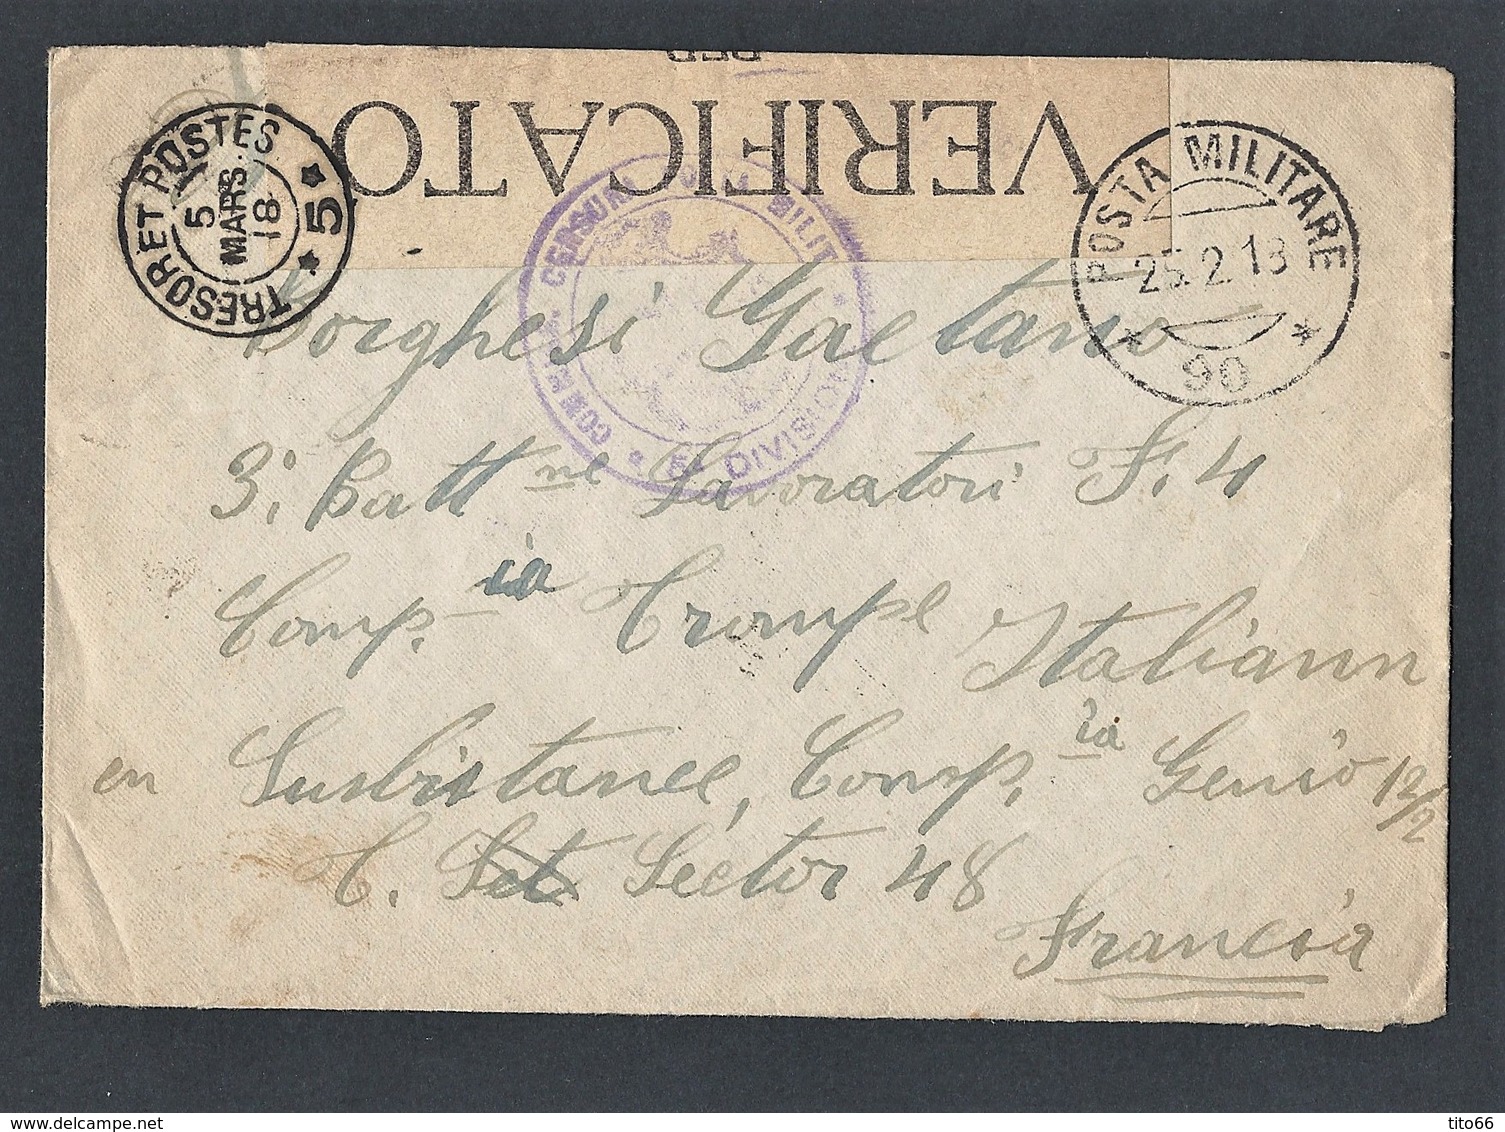 PER
VERIFICATO
TRESOR ET POSTES
5
MARS
18
* 5 *
POSTA MILITARE
25.2.18
* 90 *
CENSURA MILIT
DIVISION
Borghesi Gaetano
3: Batt ne Lavoratori F. 4
Comp. ia Trompe Italiann
en Susbistance, Comp. ia Genio 12/2
Sector 48
Francia
delcampe.net
tito66